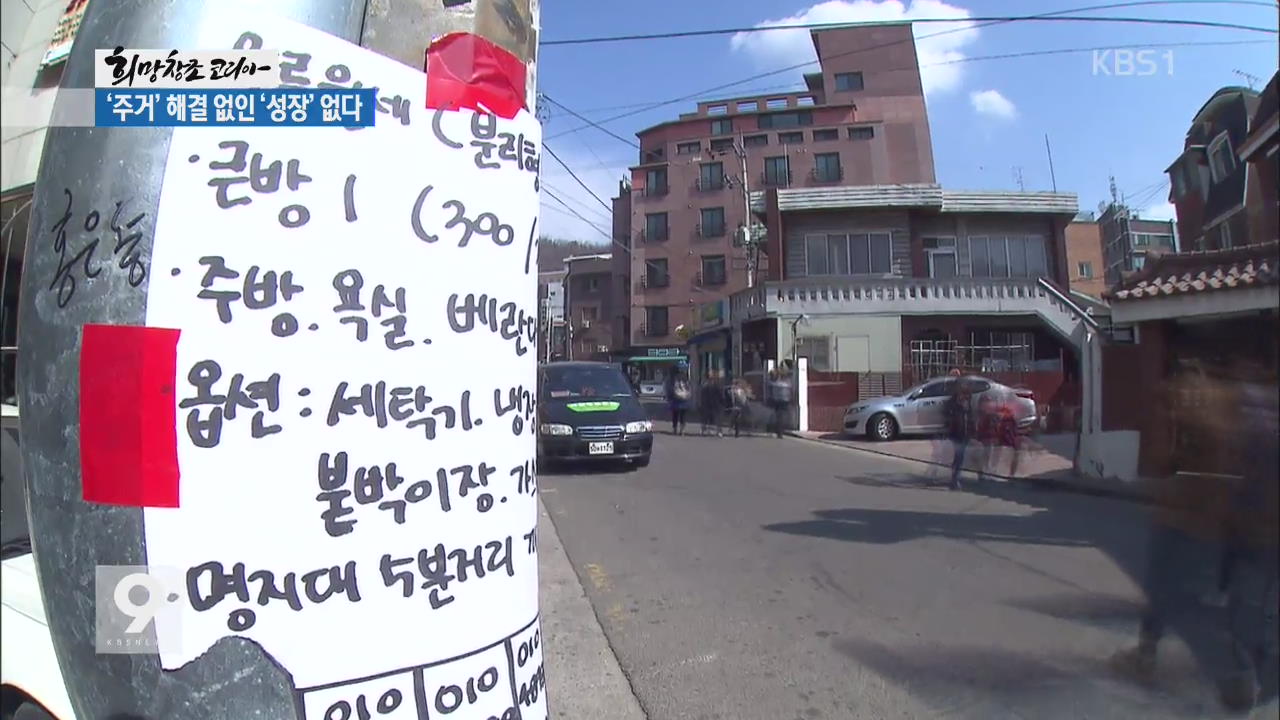 희망창조 코리아
'주거' 해결 없인 '성장' 없다
KBS1
홍은동
(분리형
· 큰방 1 (300/
· 주방. 욕실. 베란다
옵션 : 세탁기. 냉장
붙박이장. 가스
· 명지대 4분거리
010 010 010
9
KBS NEWS